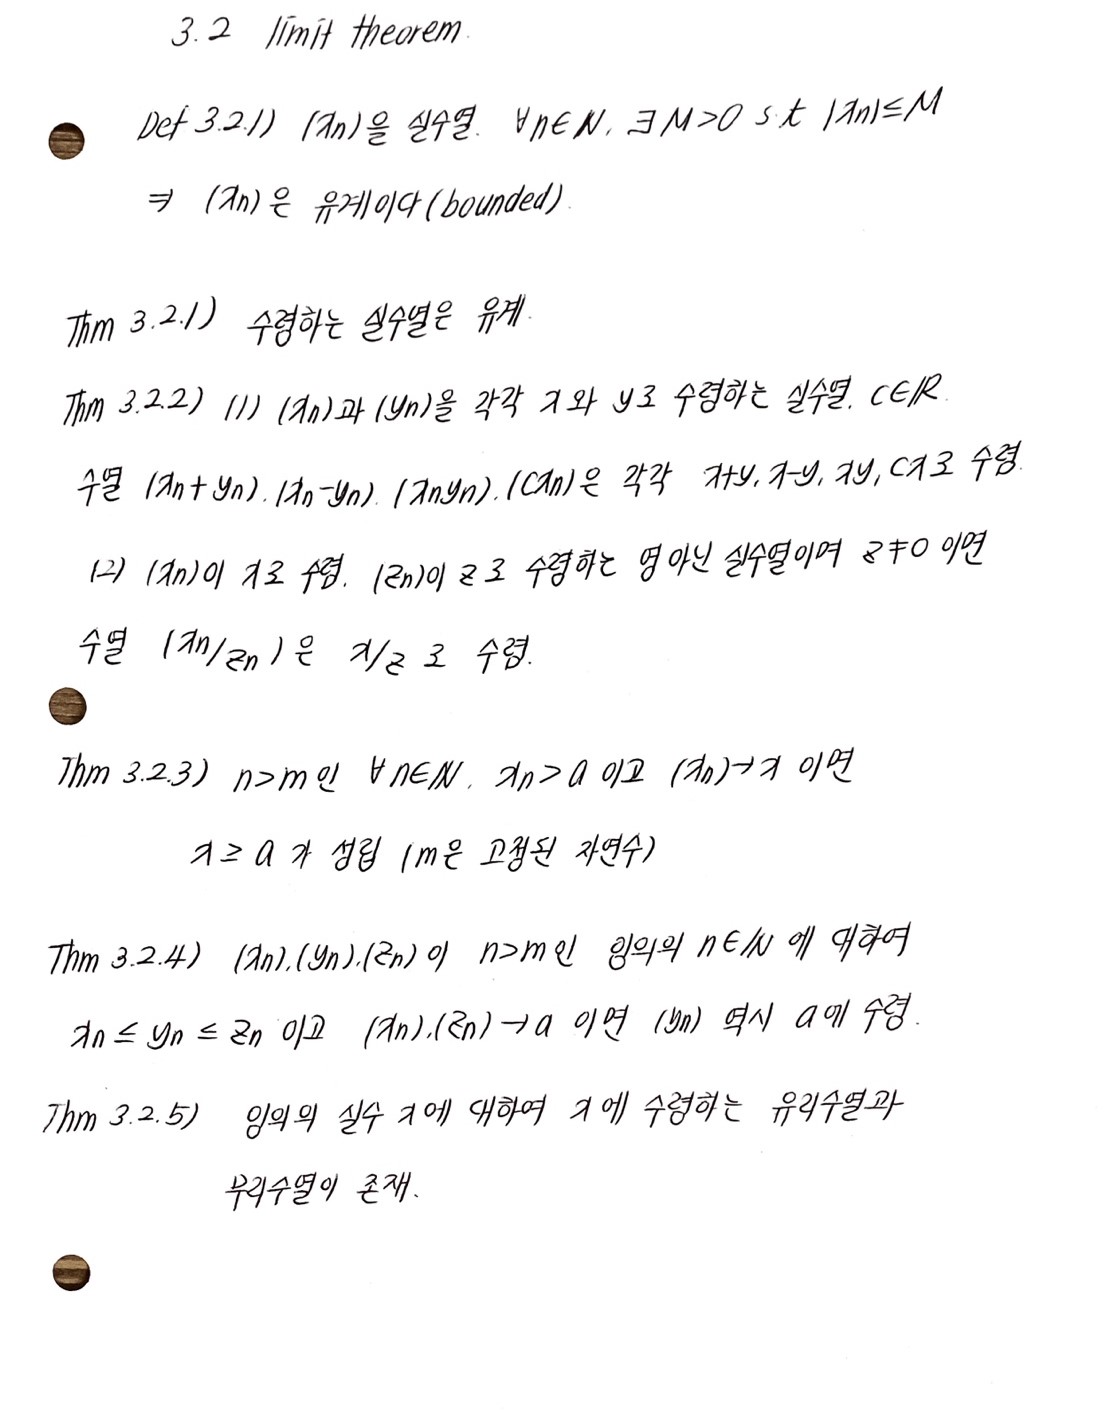 3.2 limit theorem.
Def 3.2.1) (xn)을 실수열. ∀n∈N. ∃M>0 s.t |xn|≤M
⇒ (xn)은 유계이다(bounded).
Thm 3.2.1) 수렴하는 실수열은 유계.
Thm 3.2.2) (1) (xn)과 (yn)을 각각 x와 y로 수렴하는 실수열. c∈R.
수열 (xn+yn). (xn-yn). (xnyn). (cxn)은 각각 x+y, x-y, xy, cx로 수렴.
(2) (xn)이 x로 수렴. (zn)이 z로 수렴하는 영 아닌 실수열이며 z≠0 이면
수열 (xn/zn)은 x/z 로 수렴.
Thm 3.2.3) n>m인 ∀n∈N. xn>a 이고 (xn)→x 이면
x≥a 가 성립 (m은 고정된 자연수)
Thm 3.2.4) (xn).(yn).(zn)이 n>m인 임의의 n∈N에 대하여
xn≤yn≤zn 이고 (xn).(zn)→a 이면 (yn) 역시 a에 수렴.
Thm 3.2.5) 임의의 실수 x에 대하여 x에 수렴하는 유리수열과
무리수열이 존재.